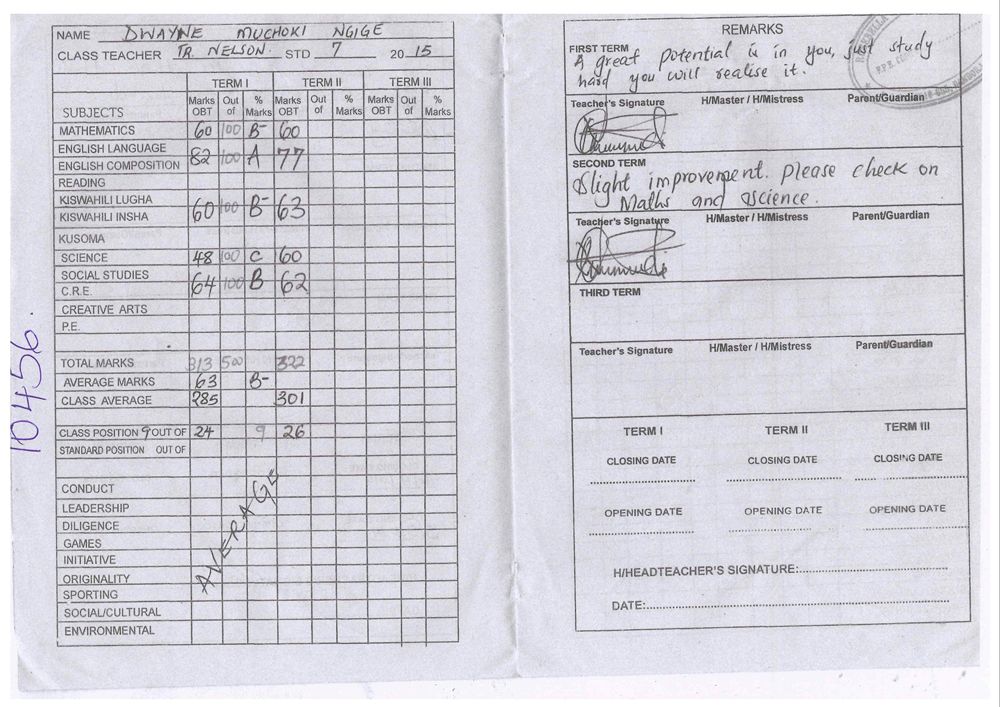 NAME DWAYNE MUCHOKI NGIGE
CLASS TEACHER TR. NELSON. STD 7 20 15
TERM I TERM II TERM III
SUBJECTS Marks OBT Out of % Marks Marks OBT Out of % Marks Marks OBT Out of % Marks
MATHEMATICS 60 100 B- 60
ENGLISH LANGUAGE
ENGLISH COMPOSITION 82 100 A 77
READING
KISWAHILI LUGHA
KISWAHILI INSHA 60 100 B- 63
KUSOMA
SCIENCE 48 100 C 60
SOCIAL STUDIES
C.R.E. 64 100 B 62
CREATIVE ARTS
P.E.
TOTAL MARKS 313 500 322
AVERAGE MARKS 63 B-
CLASS AVERAGE 285 301
CLASS POSITION 9 OUT OF 24 9 26
STANDARD POSITION OUT OF
CONDUCT
LEADERSHIP
DILIGENCE
GAMES
INITIATIVE
ORIGINALITY
SPORTING
SOCIAL/CULTURAL
ENVIRONMENTAL
AVERAGE
10456.
REMARKS
FIRST TERM
A great potential is in you, just study
hard you will realise it.
Teacher's Signature H/Master / H/Mistress Parent/Guardian
SECOND TERM
Slight improvement. Please check on
Maths and science.
Teacher's Signature H/Master / H/Mistress Parent/Guardian
THIRD TERM
Teacher's Signature H/Master / H/Mistress Parent/Guardian
TERM I TERM II TERM III
CLOSING DATE CLOSING DATE CLOSING DATE
OPENING DATE OPENING DATE OPENING DATE
H/HEADTEACHER'S SIGNATURE:
DATE: